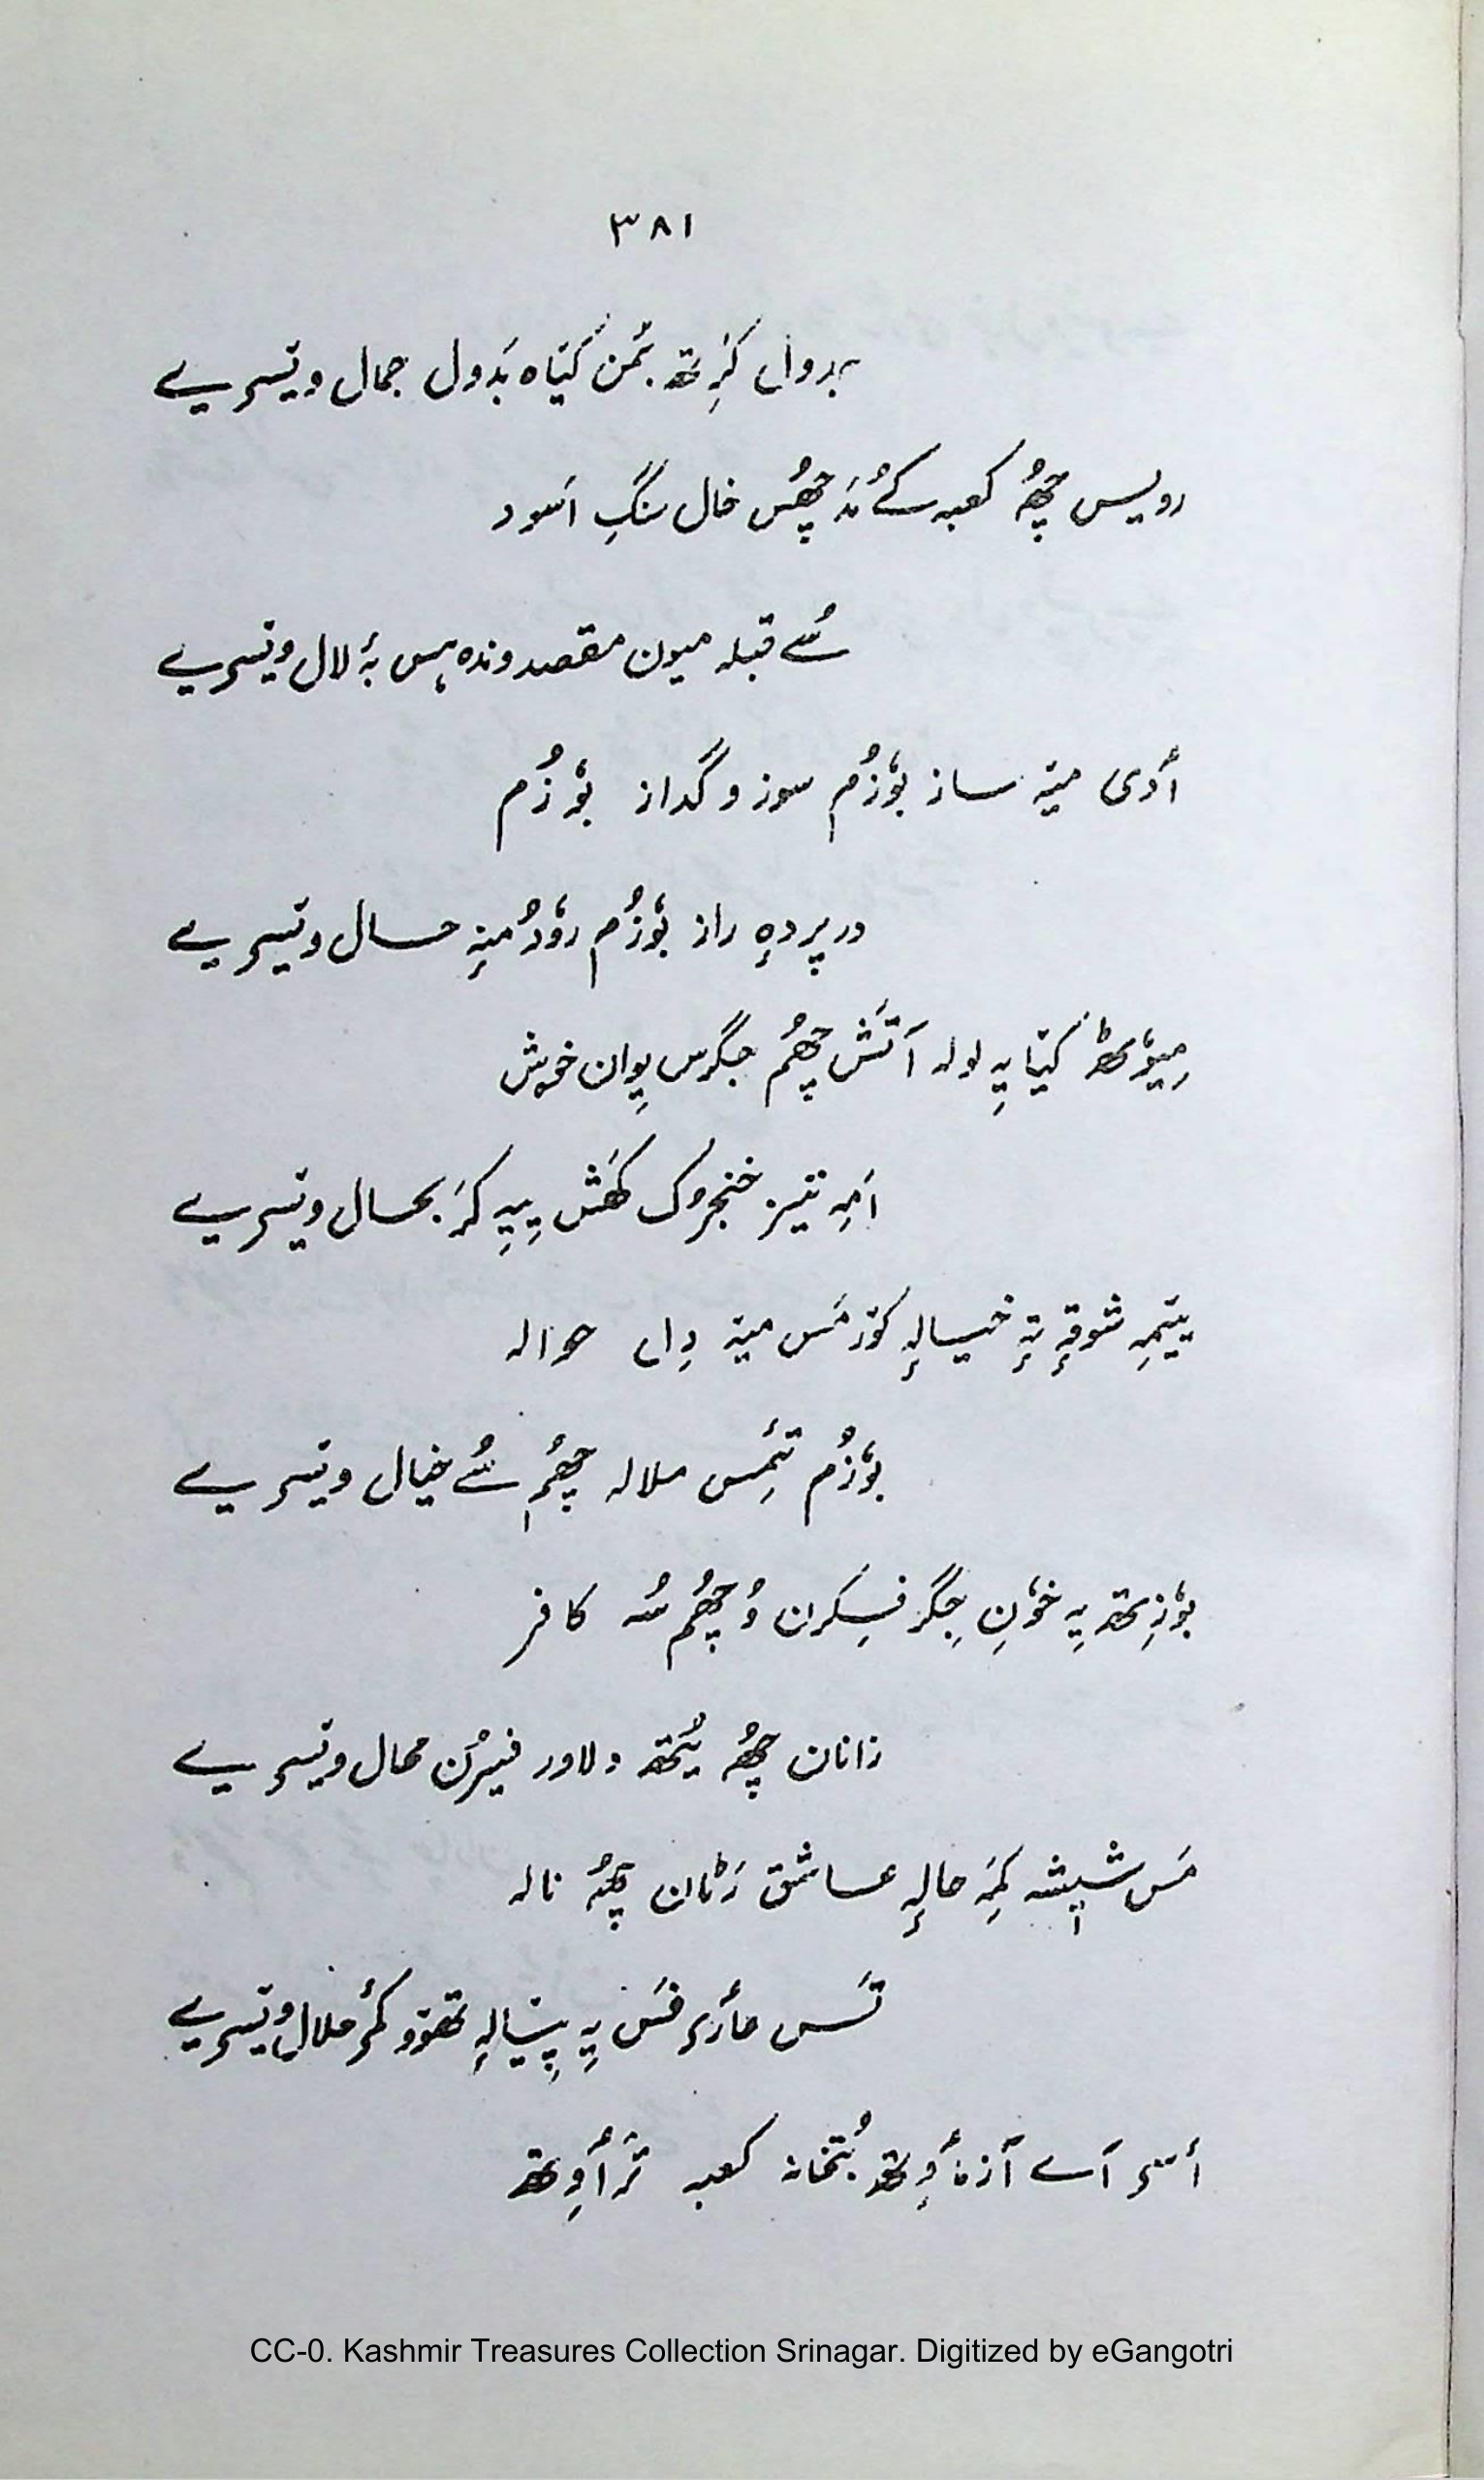 ۳۸۱
کَرِتھ بُمن کیٛاہ بَدول جمال ویٚسیے
رویس چھُ کعبہ کےُ نَہ چھُس خال سنگِ اَسود
سُے قبلہ میون مقصد وندہ ہس بہٕ لال ویٚسیے
أدی میٚہ ساز بوٗزُم سوز و گداز بوٗزُم
در پردہٕ راز بوٗزُم روٗدُ میٚہٕ حال ویٚسیے
میوٗٹھ کیٛا یہِ لولہ آتَش چھُم جگرس یِوان خوش
اَمہِ تیز خنجروک کھَش یِیہِ کَر بحال ویٚسیے
یٚیمہِ شوقہٕ تہٕ خیالہٕ کوٚرمَس میٚہ دِل حوالہ
بوٗزُم تٔمِس ملالہ چھُم سُے خیال ویٚسیے
بوٗزِتھ یہِ خوٗنِ جِگر فِکرن وُچھُم سُہ کافر
زانان چھُ یُتھ دلاور فیرُن محال ویٚسیے
مَس شیٖشہ کَمہِ حالہٕ عاشق رَٹان چھُ نالہ
تَس مأری فَس یہِ پیالہٕ تھوٚو کٔمی ملال ویٚسیے
أسی آے آزمأوِتھ بُتخانہ کعبہ ترٲوِتھ
CC-0. Kashmir Treasures Collection Srinagar. Digitized by eGangotri